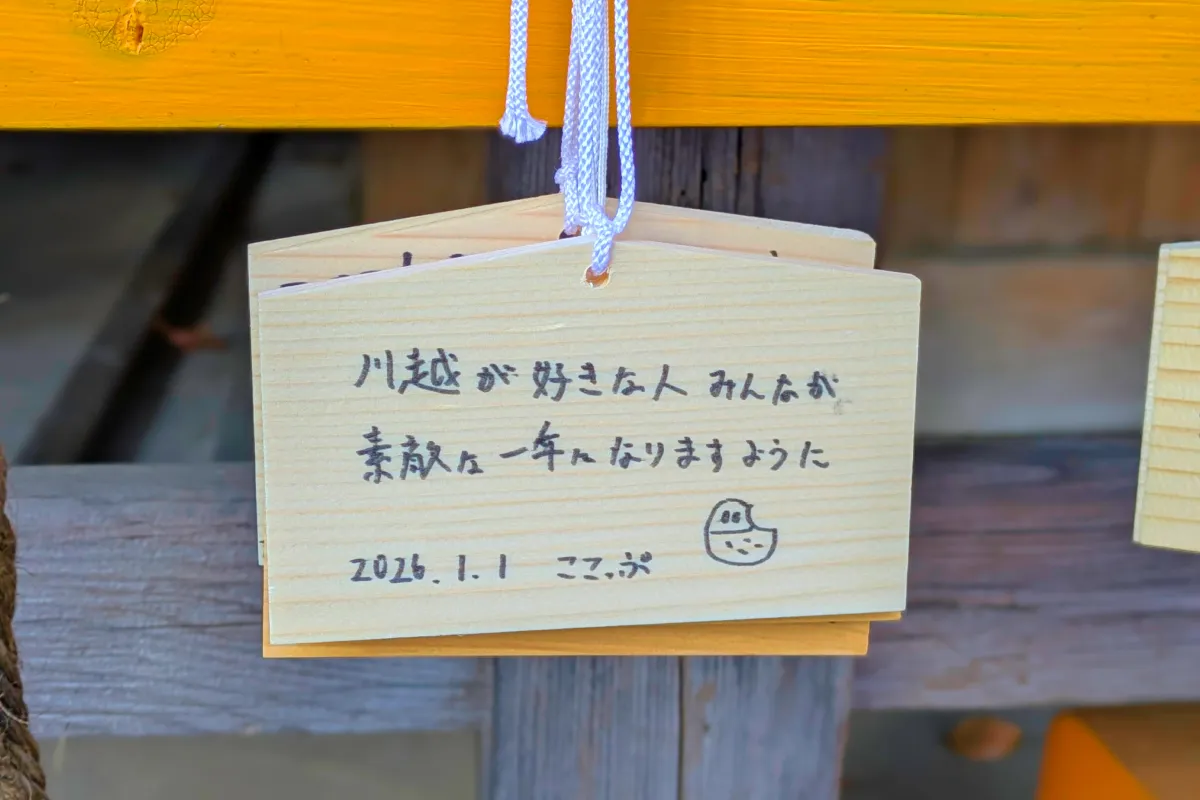 川越が好きな人みんなが
素敵な一年になりますように
2026.1.1 ここっぷ